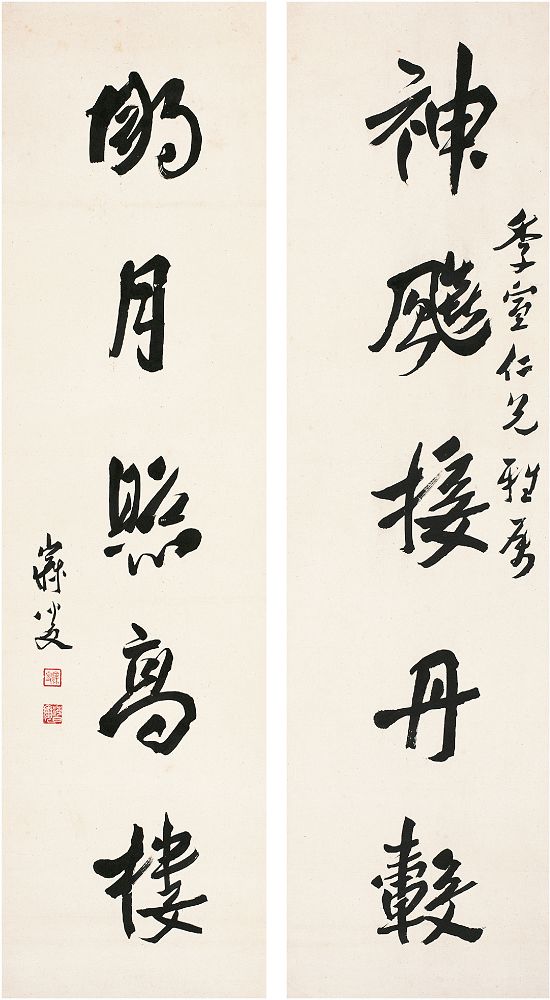 神飈接丹轂
季宣仁兄雅屬
朙月照高樓
寐叟